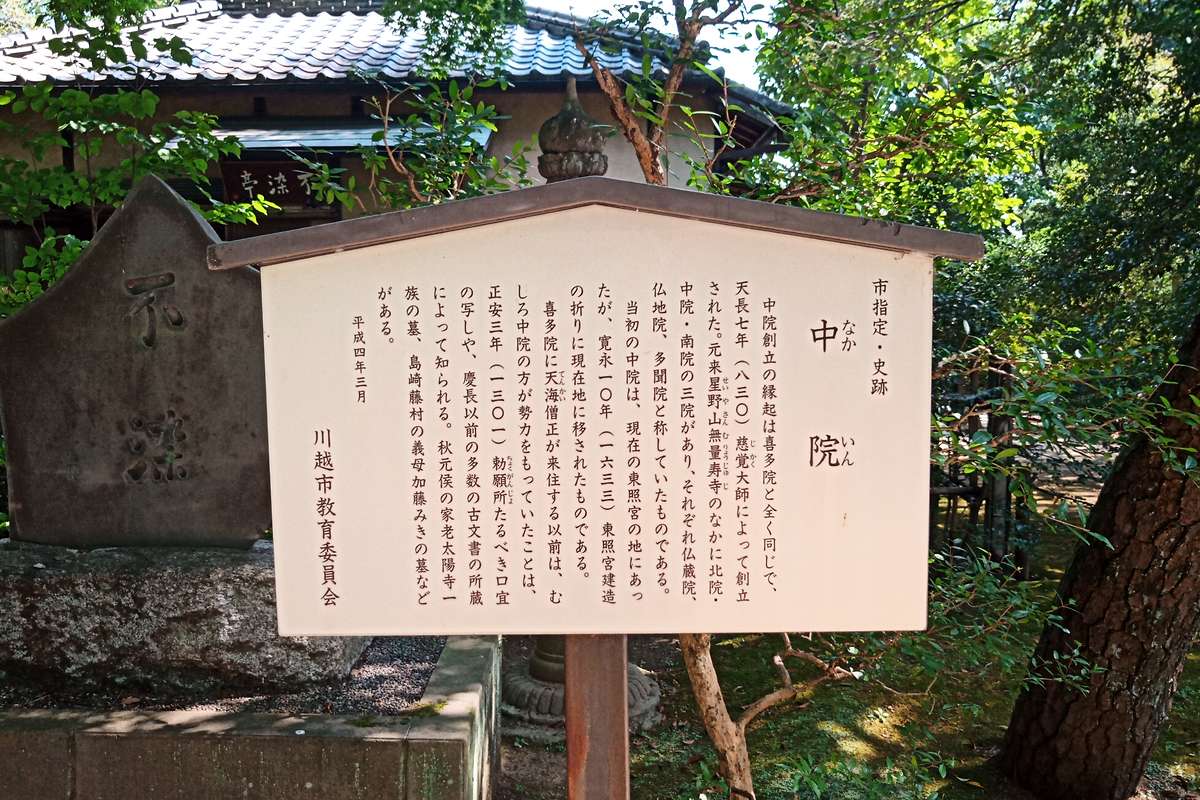 市指定・史跡
中院
なか
いん
中院創立の縁起は喜多院と全く同じで、
天長七年（八三〇）慈覚大師によって創立
じかく
された。元来星野山無量寿寺のなかに北院・
せいやさんむりょうじゅじ
中院・南院の三院があり、それぞれ仏蔵院、
仏地院、多聞院と称していたものである。
当初の中院は、現在の東照宮の地にあっ
たが、寛永一〇年（一六三三）東照宮建造
の折りに現在地に移されたものである。
喜多院に天海僧正が来住する以前は、む
てんかい
しろ中院の方が勢力をもっていたことは、
正安三年（一三〇一）勅願所たるべき口宣
ちょくがんじょ
の写しや、慶長以前の多数の古文書の所蔵
によって知られる。秋元侯の家老太陽寺一
族の墓、島崎藤村の義母加藤みきの墓など
がある。
平成四年三月
川越市教育委員会
不染
不染亭